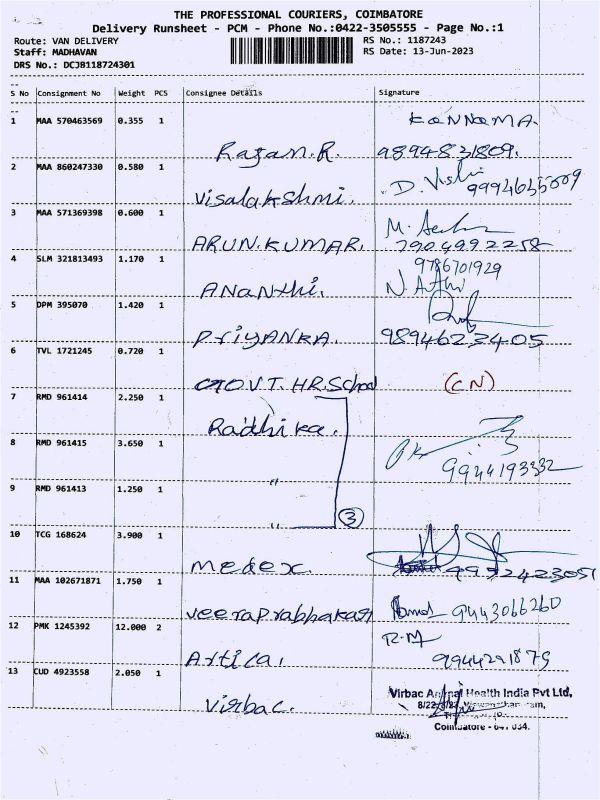 THE PROFESSIONAL COURIERS, COIMBATORE
Delivery Runsheet - PCM - Phone No.:0422-3505555 - Page No.:1
Route: VAN DELIVERY RS No.: 1187243
Staff: MADHAVAN RS Date: 13-Jun-2023
DRS No.: DCJB118724301
S No Consignment No Weight PCS Consignee Details Signature
1 MAA 570463569 0.355 1 KaNNaMA.
Rajan.R. 9894831809.
2 MAA 860247330 0.580 1 D.
Visalakshmi.
3 MAA 571369398 0.600 1 M.
ARUN.KUMAR. 7904992258
4 SLM 321813493 1.170 1 9786701929
ANanthi. N.
5 DPM 395070 1.420 1
PriYANKA. 9894623405
6 TVL 1721245 0.720 1
GOVT.HR.School (CN)
7 RMD 961414 2.250 1
Radhika.
8 RMD 961415 3.650 1
" 9944193332
9 RMD 961413 1.250 1
" 3
10 TCG 168624 3.900 1
medex.
11 MAA 102671871 1.750 1
veeraprabhakar 9443066260
12 PMK 1245392 12.000 2 R.M
Artica. 9944291875
13 CUD 4923558 2.050 1
Virbac. Virbac Animal Health India Pvt Ltd,
Coimbatore - 641 034.